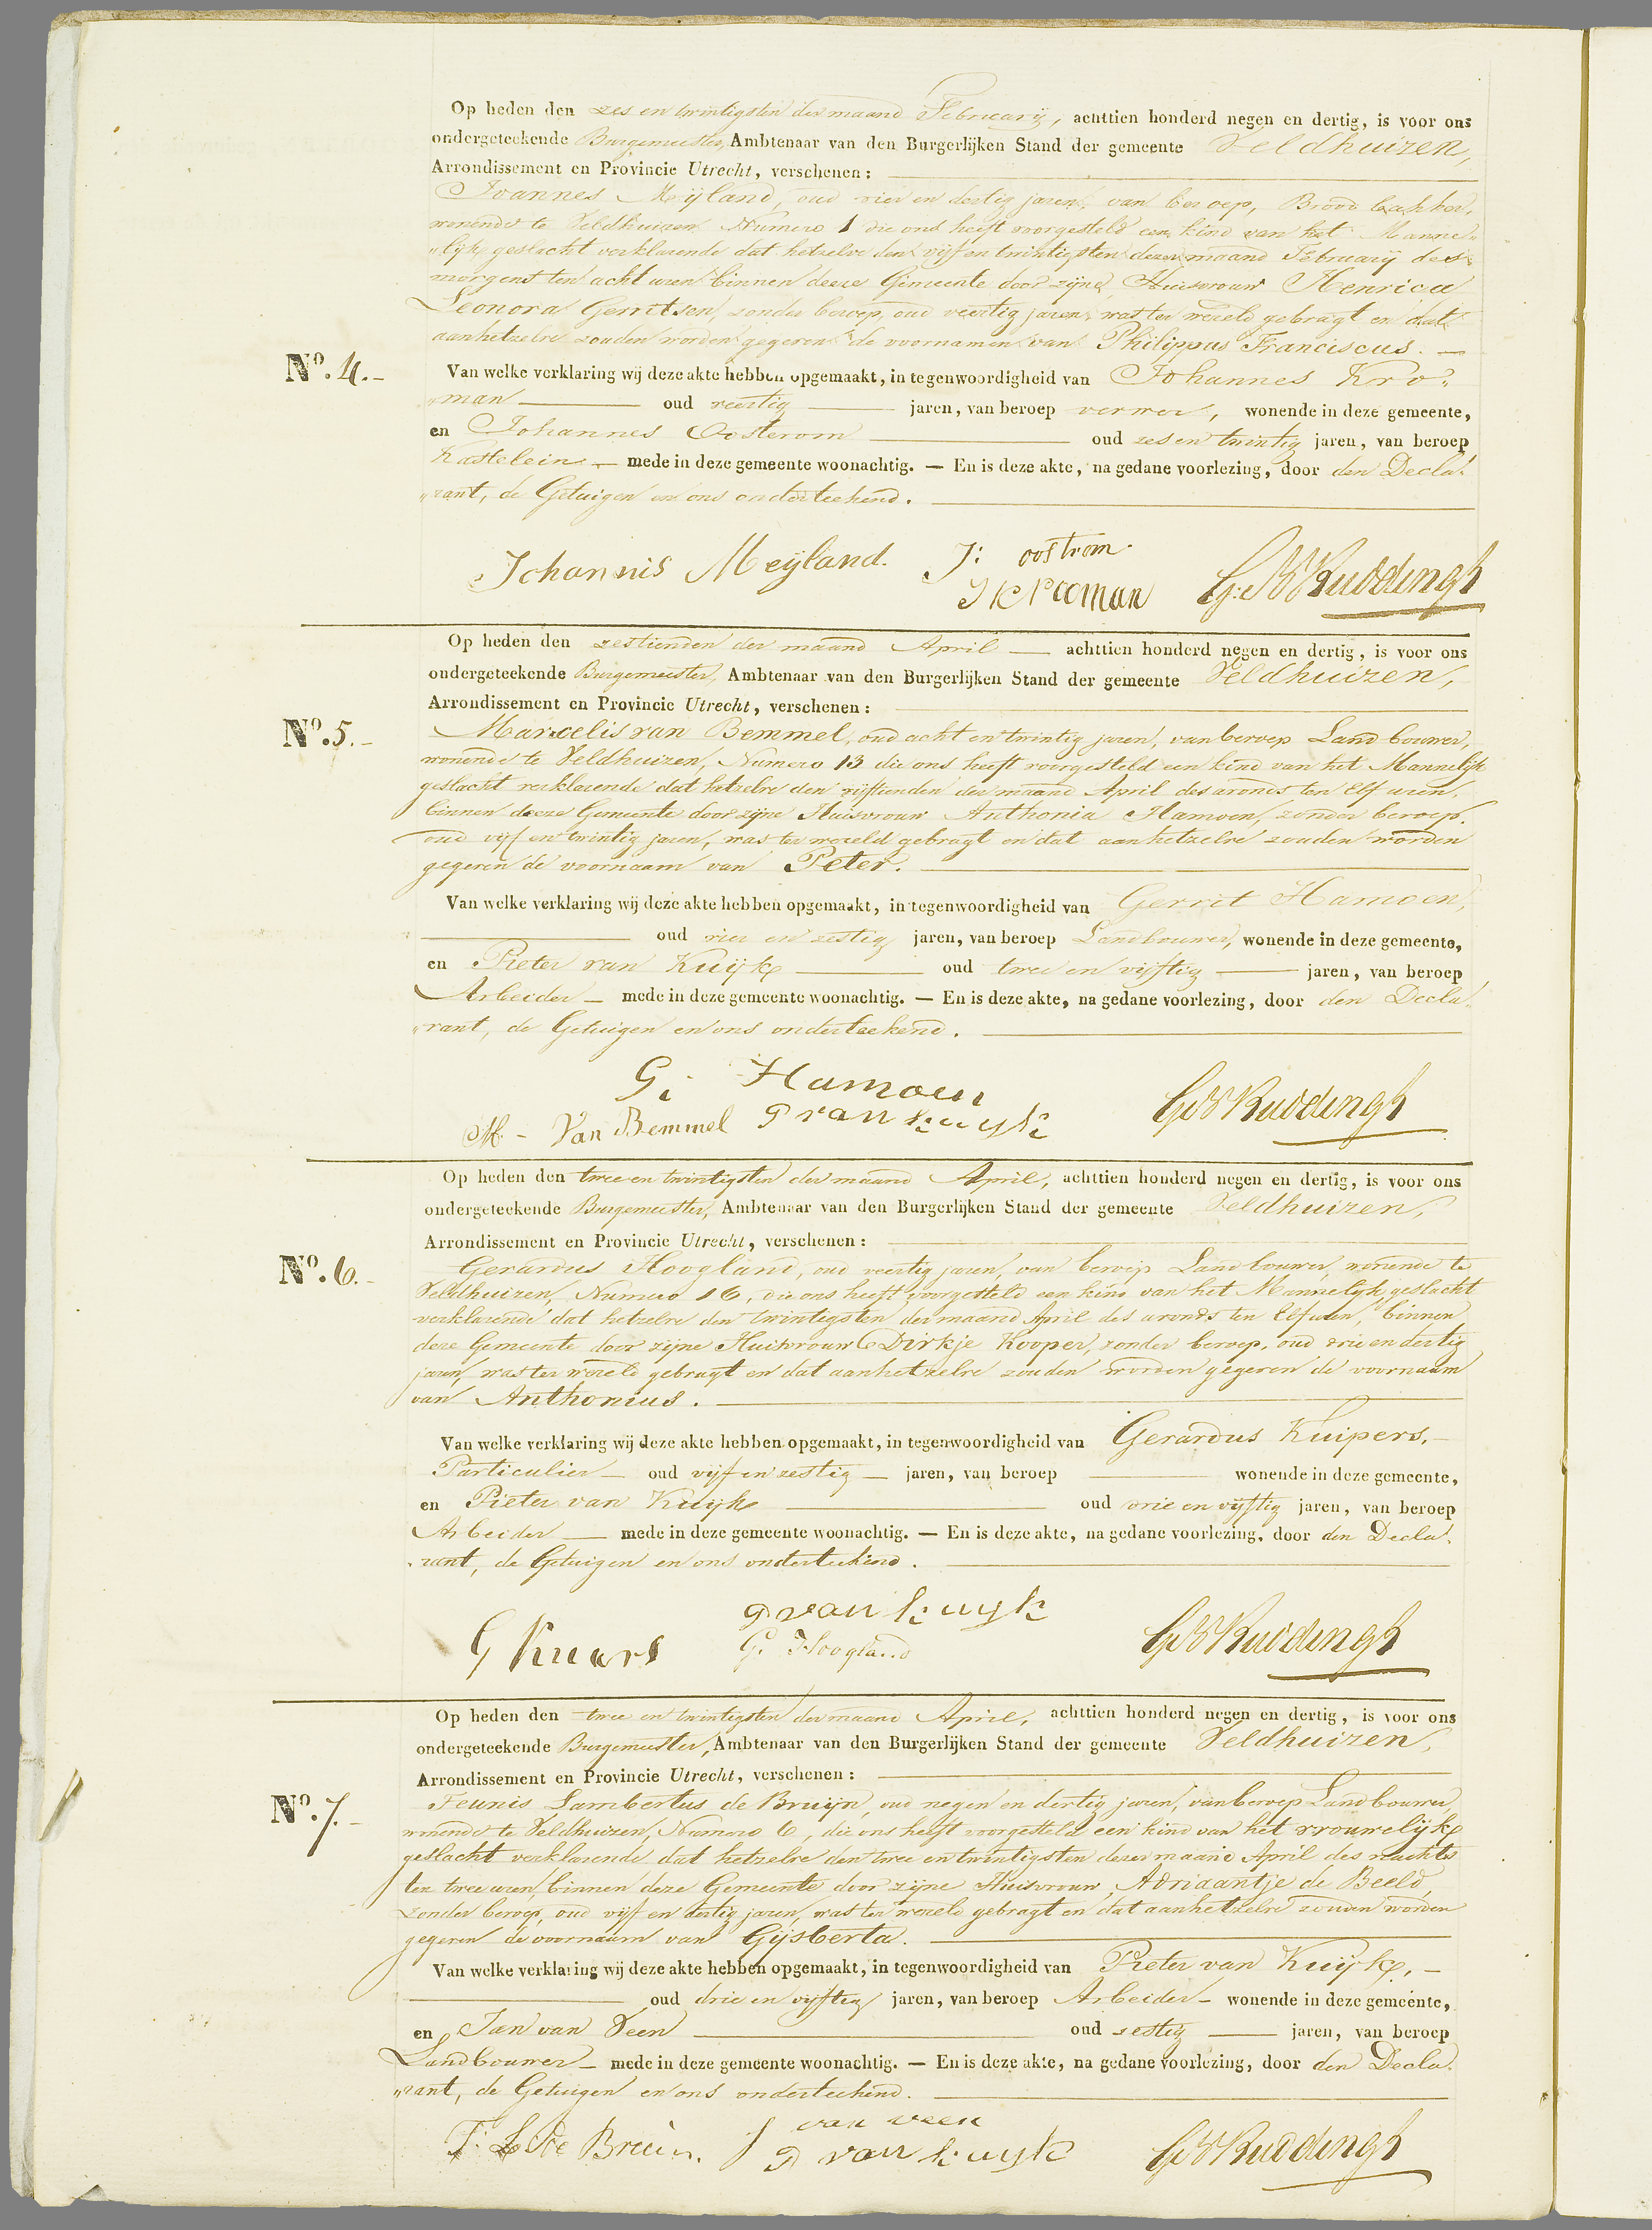 Op heden den zes en twintigsten der maand February, achttien honderd negen en dertig, is voor ons
ondergeteekende Burgemeester, Ambtenaar van den Burgerlijken Stand der gemeente Veldhuizen,
Arrondissement en Provincie Utrecht, verschenen:
Joannes Meijland, oud vier en dertig jaren, van beroep, Brood bakker,
wonende te Veldhuizen Numero 1 die ons heeft voorgesteld een kind van het Manne„
„lijk geslacht verklarende dat hetzelve den vijf en twintigsten dezer maand February des
morgens ten acht uren binnen deeze Gemeente door zijne Huisvrouw Henrica
Leonora Gerritsen, zonder beroep, oud veertig jaren, was ter wereld gebragt en dat
aanhetzelve zouden worden gegeven de voornamen van Philippus Franciscus. —
No. 4. - Van welke verklaring wij deze akte hebben opgemaakt, in tegenwoordigheid van Johannes Kro„
„man — oud veertig — jaren, van beroep verwer, wonende in deze gemeente,
en Johannes Oosterom — oud zes en twintig jaren, van beroep
Kastelein — mede in deze gemeente woonachtig. — En is deze akte, na gedane voorlezing, door den Decla„
„rant, de Getuigen en ons onderteekend.
Johannis Meijland. J: oostrom.
J Krooman G: W Ruddingh
Op heden den zestienden der maand April — achttien honderd negen en dertig, is voor ons
ondergeteekende Burgemeester, Ambtenaar van den Burgerlijken Stand der gemeente Veldhuizen,
Arrondissement en Provincie Utrecht, verschenen:
No. 5. - Marcelis van Bemmel, oud acht en twintig jaren, van beroep Land bouwer,
wonende te Veldhuizen, Numero 13 die ons heeft voorgesteld een kind van het Mannelijk
geslacht verklarende dat hetzelve den vijftienden der maand April des avonds ten Elf uren,
binnen deeze Gemeente door zijne Huisvrouw Anthonia Hamoen, zonder beroep,
oud vijf en twintig jaren, was ter wereld gebragt en dat aan hetzelve zouden worden
gegeven de voornaam van Peter.
Van welke verklaring wij deze akte hebben opgemaakt, in tegenwoordigheid van Gerrit Hamoen,
— oud vier en zestig jaren, van beroep Landbouwer, wonende in deze gemeente,
en Pieter van Kuijk — oud twee en vijftig — jaren, van beroep
Arbeider — mede in deze gemeente woonachtig. — En is deze akte, na gedane voorlezing, door den Decla„
„rant, de Getuigen en ons onderteekend.
G: Hamoen
M - Van Bemmel P van kuyk GW Ruddingh
Op heden den twee en twintigsten der maand April, achttien honderd negen en dertig, is voor ons
ondergeteekende Burgemeester, Ambtenaar van den Burgerlijken Stand der gemeente Veldhuizen,
Arrondissement en Provincie Utrecht, verschenen:
No. 6. - Gerardus Hoogland, oud veertig jaren, van beroep Landbouwer, wonende te
Veldhuizen, Numero 16, die ons heeft voorgesteld een kind van het Mannelijk geslacht
verklarende dat hetzelve den twintigsten der maand April des avonds ten Elf uren, binnen
deze Gemeente door zijne Huisvrouw Dirkje Kooper, zonder beroep, oud drie en dertig
jaren, was ter wereld gebragt en dat aanhetzelve zouden worden gegeven de voornaam
van Anthonius.
Van welke verklaring wij deze akte hebben opgemaakt, in tegenwoordigheid van Gerardus Kuipers, —
Particulier — oud vijf en zestig — jaren, van beroep — wonende in deze gemeente,
en Pieter van Kuijk — oud drie en vijftig jaren, van beroep
Arbeider — mede in deze gemeente woonachtig. — En is deze akte, na gedane voorlezing, door den Decla„
„rant, de Getuigen en ons onderteekend.
P van kuyk
G. Hoogland GW Ruddingh
Op heden den twee en twintigsten der maand April, achttien honderd negen en dertig, is voor ons
ondergeteekende Burgemeester, Ambtenaar van den Burgerlijken Stand der gemeente Veldhuizen,
Arrondissement en Provincie Utrecht, verschenen:
No. 7. - Teunis Lambertus de Bruijn, oud negen en dertig jaren, van beroep Landbouwer
wonende te Veldhuizen, Numero 6, die ons heeft voorgesteld een kind van het vrouwelijke
geslacht verklarende dat hetzelve den twee en twintigsten dezer maand April des nachts
ten twee uren, binnen deze Gemeente door zijne Huisvrouw, Adriaantje de Beeld,
zonder beroep, oud vijf en dertig jaren, was ter wereld gebragt en dat aanhetzelve zouden worden
gegeven de voornaam van Gijsberta.
Van welke verklaring wij deze akte hebben opgemaakt, in tegenwoordigheid van Pieter van Kuijk, —
— oud drie en vijftig jaren, van beroep Arbeider — wonende in deze gemeente,
en Jan van Veen — oud zestig — jaren, van beroep
Landbouwer — mede in deze gemeente woonachtig. — En is deze akte, na gedane voorlezing, door den Decla„
„rant, de Getuigen en ons onderteekend.
T. L de Bruin. J van veen
P van kuyk GW Ruddingh